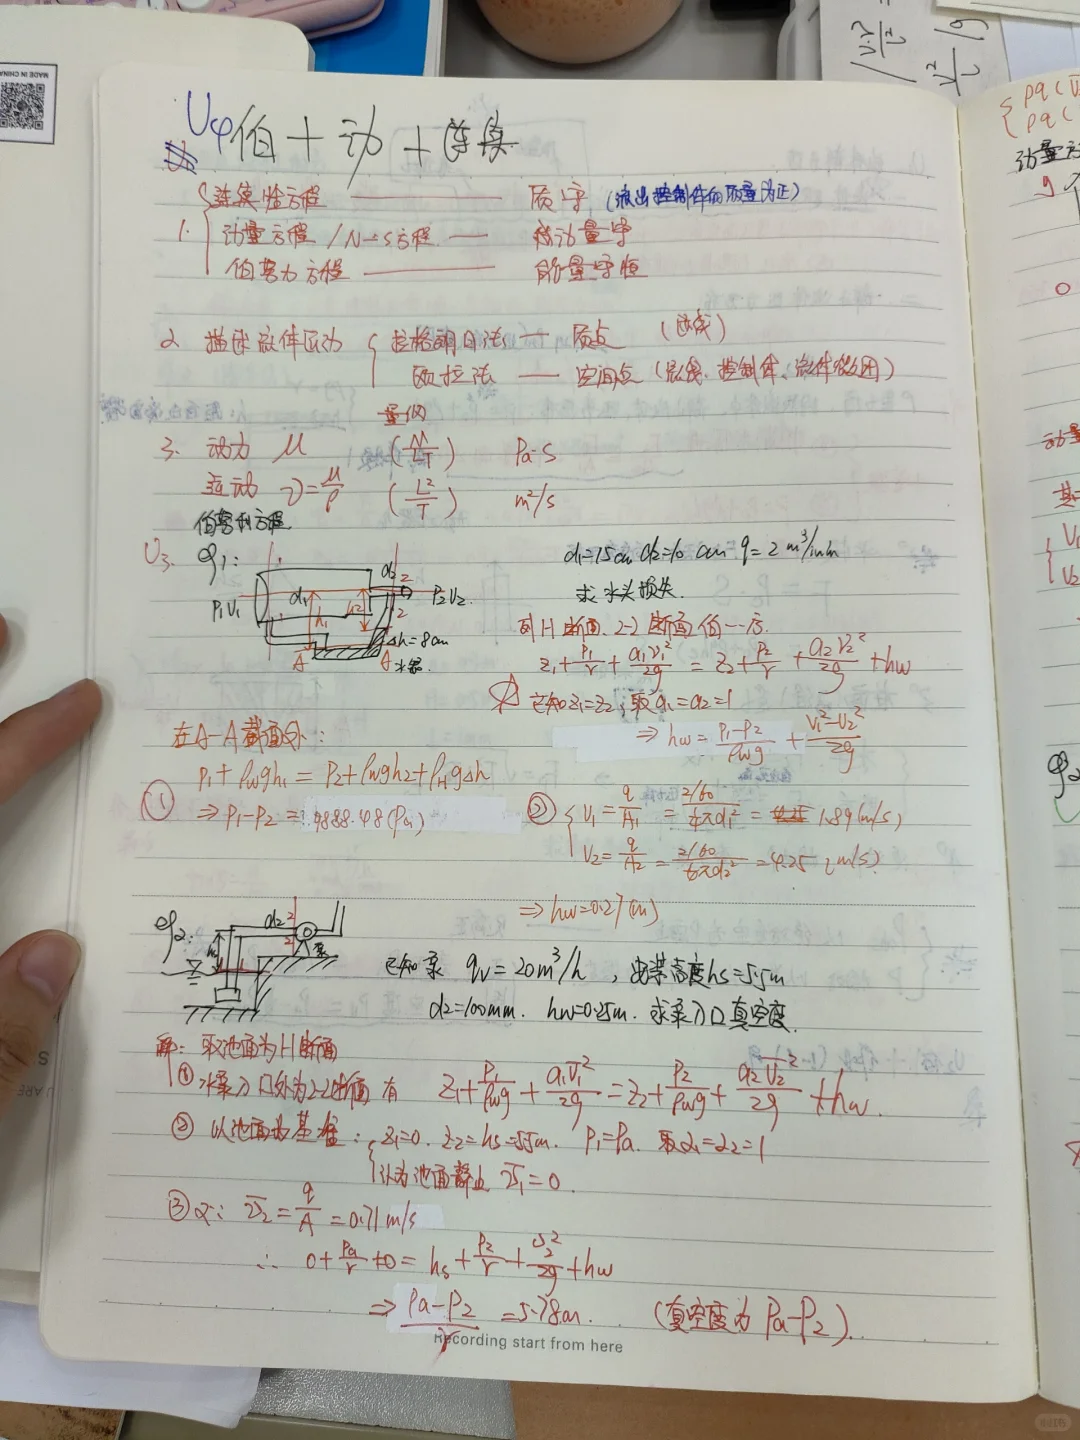 U4伯+动+连续
连续性方程 —— 质守 (流出控制体的质量为正)
1. 动量方程/N-S方程 —— 动量守
伯努力方程 —— 能量守恒
2 描述流体运动 拉格朗日法 — 质点 (迹线)
欧拉法 — 空间点 (流线、控制体、流体微团)
量纲
3. 动力 μ (M/LT) Pa·S
运动 ν=μ/ρ (L²/T) m²/s
伯努利方程
U3. eg1: d1=15cm d2=10cm q=2m³/min
求水头损失.
d1 d2 h1 h2 P1V1 P2V2 Δh=8cm A A 水银
列1-1断面、2-2断面伯一方.
z1+P1/γ+α1v1²/2g=z2+P2/γ+α2v2²/2g+hw
☆ 已知z1=z2,取α1=α2=1
⇒hw=P1-P2/ρwg+V1²-V2²/2g
在A-A截面处:
P1+ρwgh1=P2+ρwgh2+ρHgΔh
① ⇒P1-P2=9888.48(Pa)
② V1=q/A1=2/60/¼πd1²=1.89(m/s)
V2=q/A2=2/60/¼πd2²=4.25(m/s)
⇒hw=0.27(m)
eg2: d2 2 2 泵
已知泵 qv=20m³/h,安装高度hs=5.5m
d2=100mm. hw=0.25m. 求泵入口真空度.
解:取池面为1-1断面
① 水泵入口处为2-2断面 有 z1+P1/ρwg+α1v̄1²/2g=z2+P2/ρwg+α2v̄2²/2g+hw.
② 以池面为基准: z1=0. z2=hs=5.5m. P1=Pa. 取α1=α2=1
认为池面静止 v̄1=0.
③ 又∵ v̄2=q/A=0.71m/s
∴ 0+Pa/γ+0=hs+P2/γ+v2²/2g+hw
⇒Pa-P2/γ=5.78m. (真空度为Pa-P2).
Recording start from here
MADE IN CHINA
动量方
动量
V1
V2
eg2